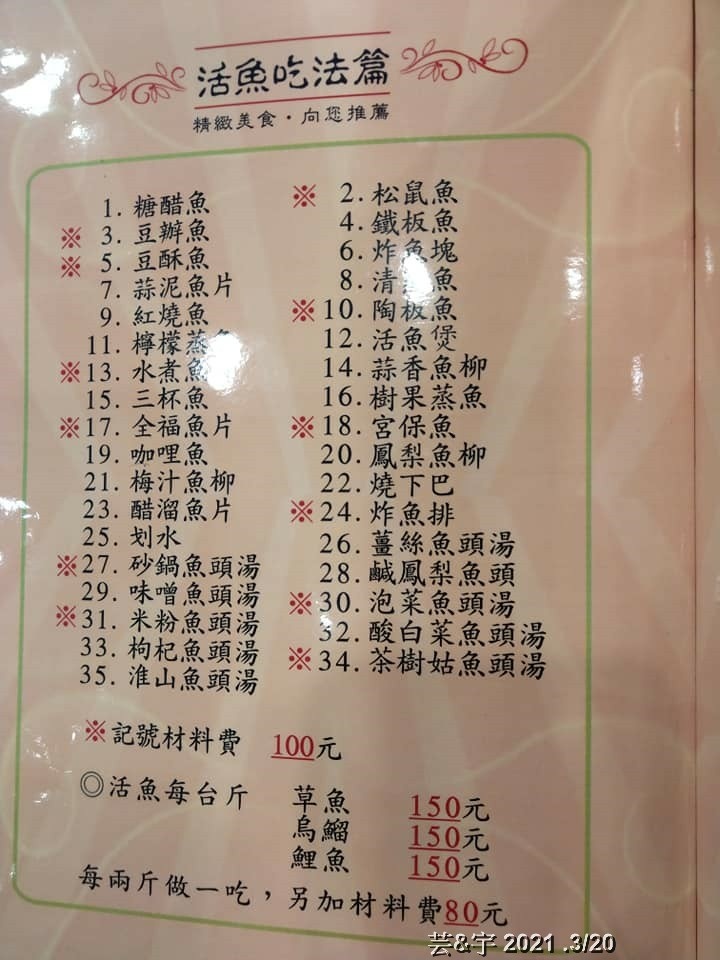 活魚吃法篇
精緻美食・向您推薦
1. 糖醋魚 ※ 2. 松鼠魚
※ 3. 豆瓣魚 4. 鐵板魚
※ 5. 豆酥魚 6. 炸魚塊
7. 蒜泥魚片 8. 清魚
9. 紅燒魚 ※10. 陶板魚
11. 檸檬蒸魚 12. 活魚煲
※13. 水煮魚 14. 蒜香魚柳
15. 三杯魚 16. 樹果蒸魚
※17. 全福魚片 ※18. 宮保魚
19. 咖哩魚 20. 鳳梨魚柳
21. 梅汁魚柳 22. 燒下巴
23. 醋溜魚片 ※24. 炸魚排
25. 划水 26. 薑絲魚頭湯
※27. 砂鍋魚頭湯 28. 鹹鳳梨魚頭
29. 味噌魚頭湯 ※30. 泡菜魚頭湯
※31. 米粉魚頭湯 32. 酸白菜魚頭湯
33. 枸杞魚頭湯 ※34. 茶樹姑魚頭湯
35. 淮山魚頭湯
※記號材料費 100元
◎活魚每台斤 草魚 150元
烏鰡 150元
鯉魚 150元
每兩斤做一吃，另加材料費80元
芸&宇 2021 .3/20